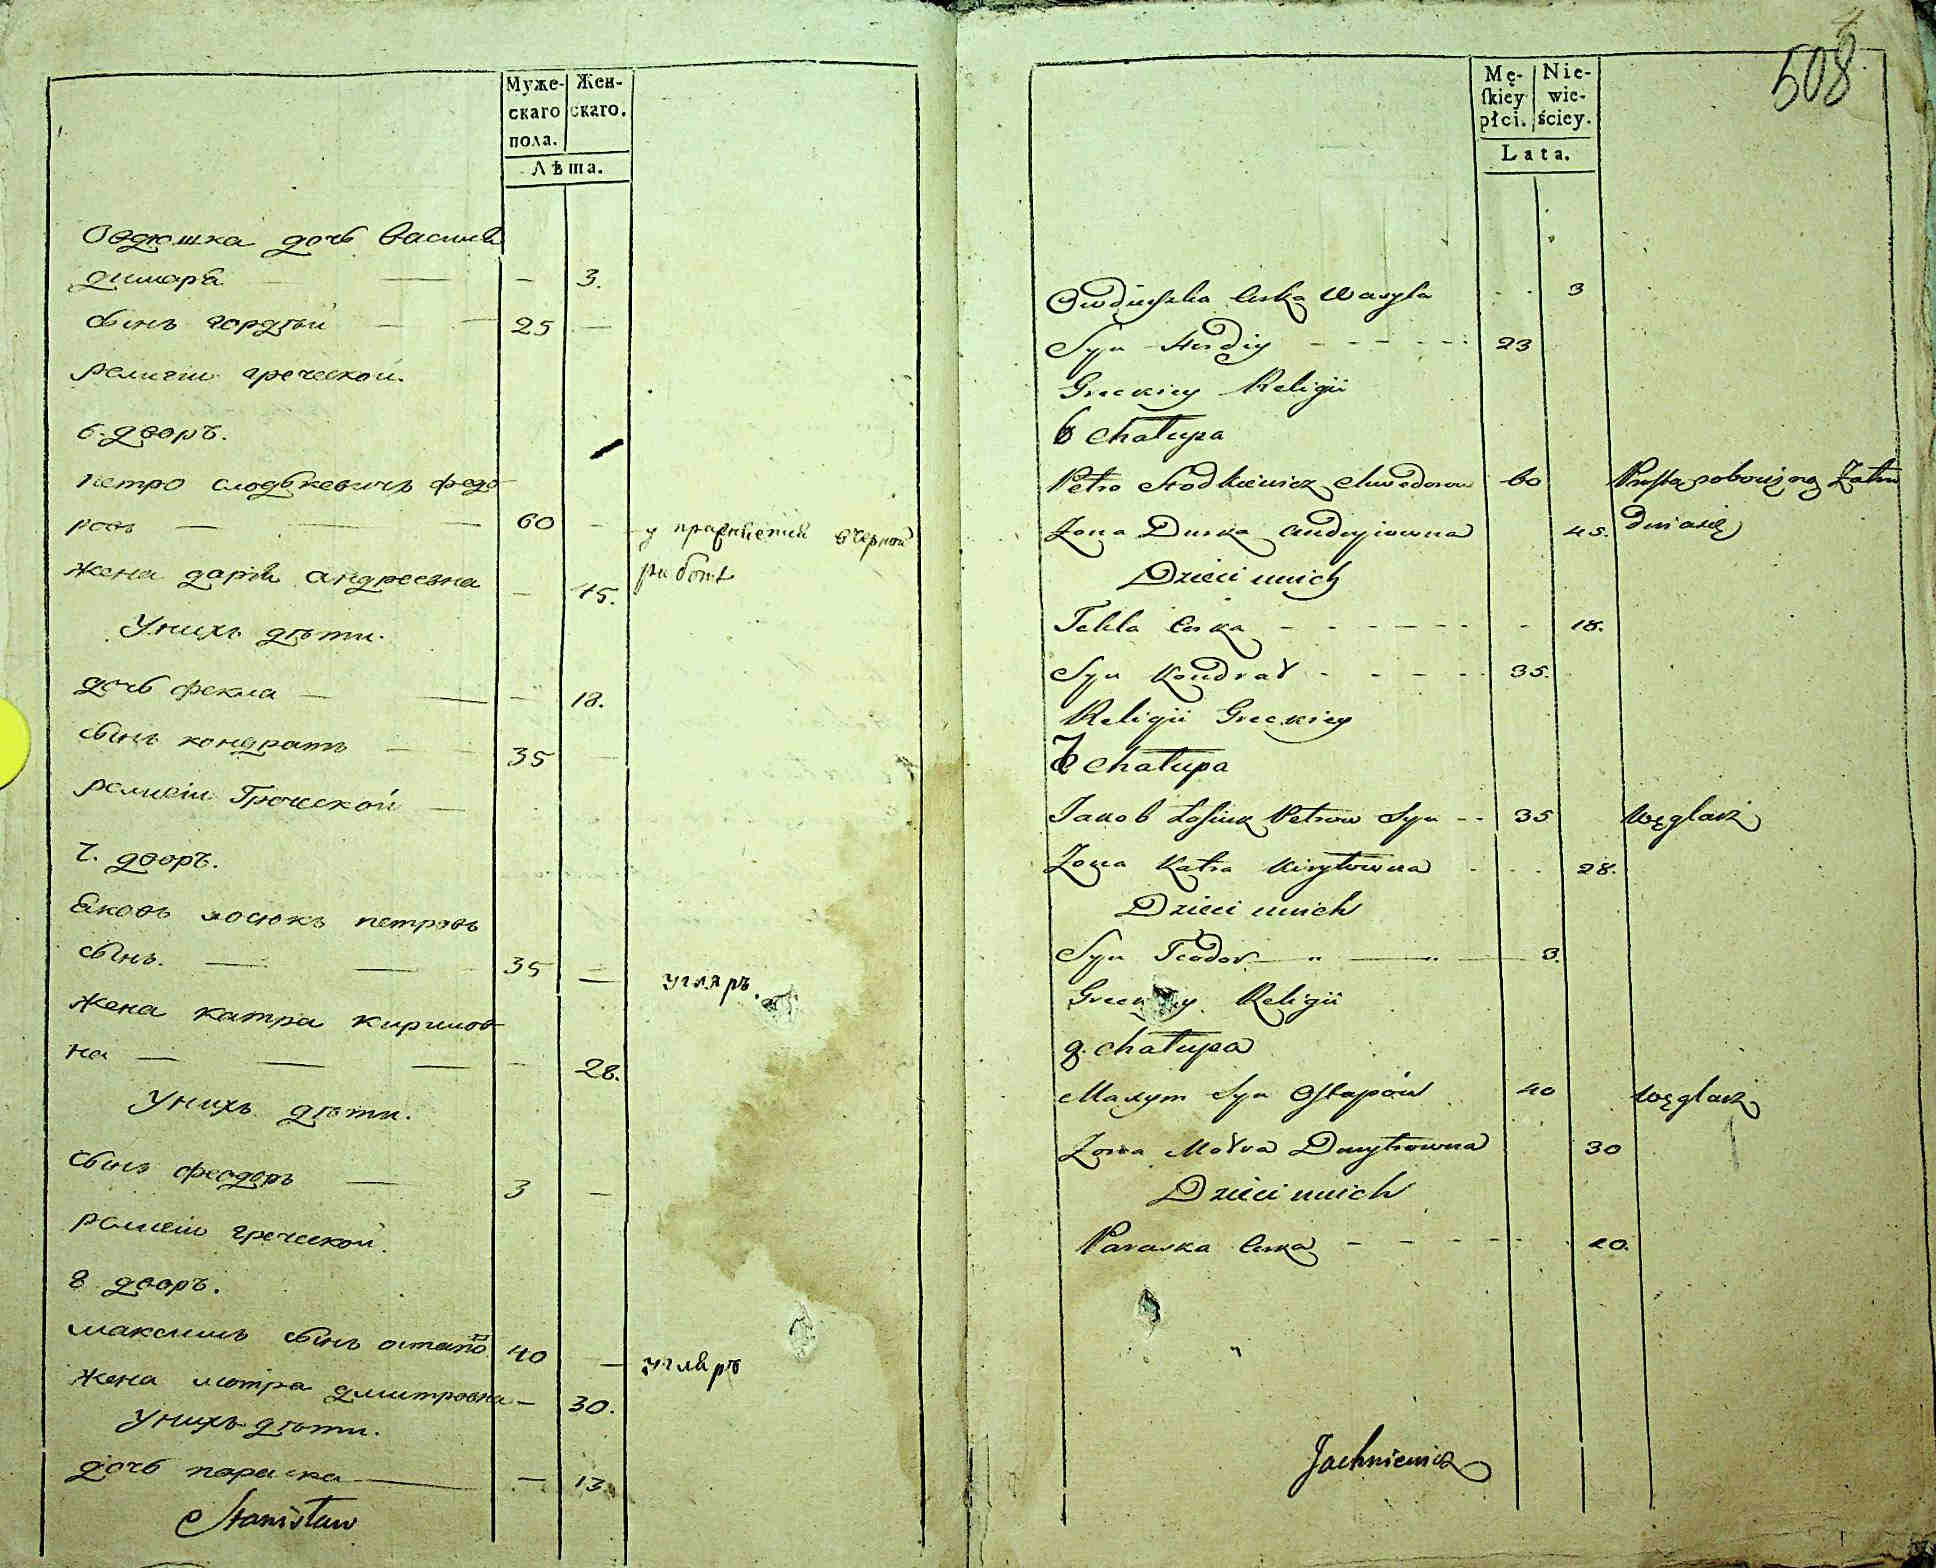 Муже-
скаго
пола.
Жен-
скаго.
Лѣта.
Овдюшка дочь Василя
димара — — 3.
сынъ гордѣй — — 25 —
религіи греческой.
6. дворъ.
петро слодкевичъ федо
ровъ — — — 60 —
у пражненіи чорной
работѣ
жена дарія андреевна — 45.
У нихъ дѣти.
дочь фекла — — — 18.
сынъ кондратъ — — 35 —
религіи Греческой —
7. дворъ.
Яковъ лосюкъ петровъ
сынъ. — — 35 — угляръ.
жена катра кирилов
на — — — — 28.
У нихъ дѣти.
сынъ феодоръ — 3 —
религіи греческой.
8 дворъ.
максимъ сынъ остапо 40 — угляръ
жена мотра дмитровна — 30.
У нихъ дѣти.
дочь параска — — 13.
Stanisław
508
Mę-
ſkiey
płci.
Nie-
wie-
ściey.
Lata.
Owdiuszka Curka Wasyla - - 3
Syn Hordiy - - - - - 23
Greckiey Religii
6 Chałupa
Petro Słodkiewicz Chwedorow 60
Żona Darka Andryiowna 45.
Dzieci u nich
Tekla Curka - - - - - - 18.
Syn Kondrat - - - - 35.
Religii Greckiey
7 Chałupa
Jakob Łosiuk Petrow Syn - - 35 Węglarz
Żona Katra Kiryłowna - - - 28.
Dzieci u nich
Syn Teodor — " — " — 3.
Greckiey Religii
8. Chałupa
Maxym Syn Ostapów 40 Węglarz
Żona Motra Dmytrowna 30
Dzieci u nich
Paraska Curka - - - - - - 10.
Jachniewicz